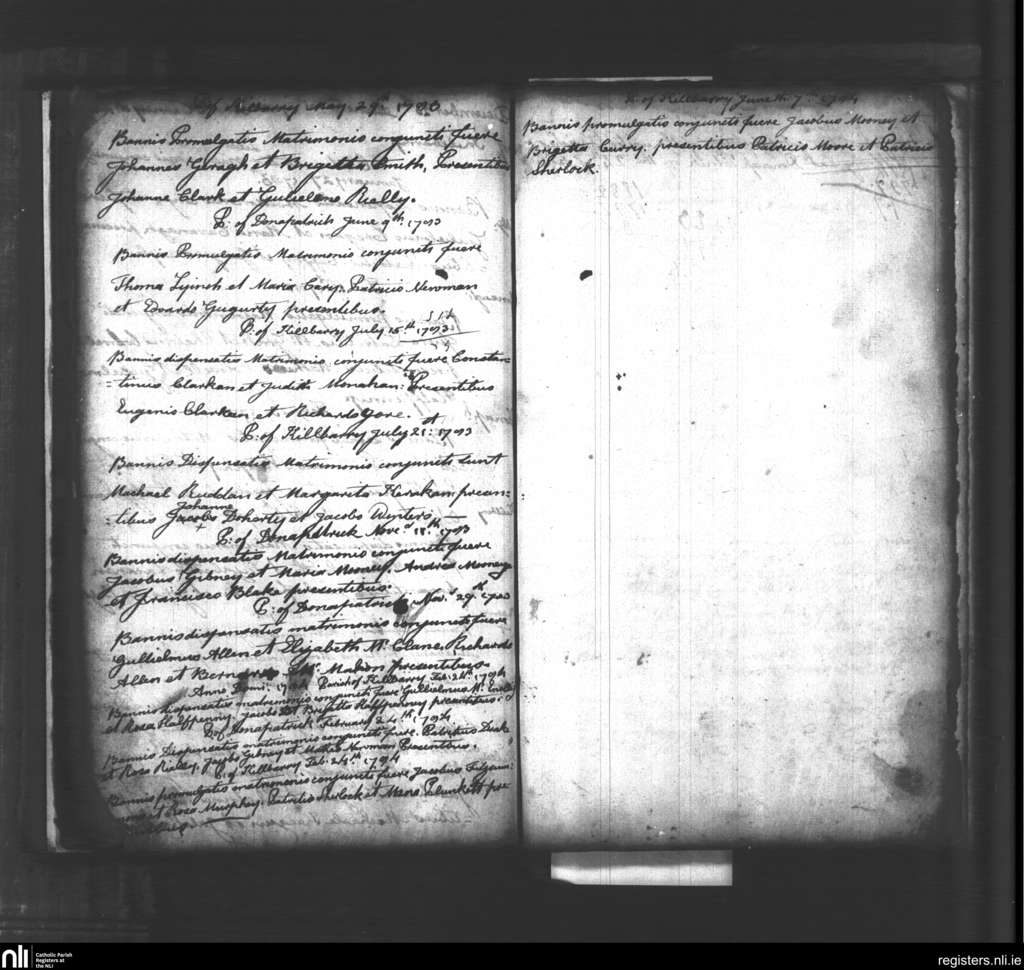 P: of Killbarry May 29th 1793
Bannis Promulgatis Matrimonio conjuncti fuere
Johannes Geragh et Brigetta Smith, Presentibus
Johanne Clark et Gulielmo Rielly.
P: of Donapatrick June 9th 1793
Bannis Promulgatis Matrimonio conjuncti fuere
Thoma Lyinch et Maria Cary. Patricio Newman
et Edvardo Gugurty presentibus.
P: of Killbarry July 15th 1793
Bannis dispensatis Matrimonio conjuncti fuere Constan=
=tinus Clarken et Judith Monahan: Presentibus
Eugenio Clarken et Richardo Gore.
P: of Killbarry July 21st 1793
Bannis Dispensatis Matrimonio conjuncti sunt
Michael Ruddan et Margarita Kerakan presen=
Johanne
=tibus Jacobo Doherty et Jacobo Winters
P: of Donapatrick Novr 18th 1793
Bannis dispensatis Matrimonio conjuncti fuere
Jacobus Gibney et Maria Mooney. Andrea Mooney
et Francisco Blake presentibus.
P: of Donapatrick Novr 29th 1793
Bannis dispensatis matrimonio conjuncti fuere
Gullielmus Allen et Elizabeth Mc Clane. Richardo
Allen et Bernardo Madden presentibus.
Anno Domi: 1794 Parish of Killbarry Feb: 24th 1794
Bannis dispensatis matrimonio conjuncti fuere Gullielmus Mc
et Rosa Halfpenny. Jacobo et Brigetta Halfpenney presentibus.
P: of Donapatrick February 24th, 1794
Bannis Dispensatis matrimonio conjuncti fuere. Patritius Duik
et Rosa Rielly. Jacobo Gibney et Newman Presentibus.
P: of Killbarry Feb: 24th 1794
Bannis promulgatis matrimonio conjuncti fuere Jacobus
et Rosa Murphy. Patritio Sherlock et Plunkett pre
P: of Killbarry June 7th 1794
Bannis promulgatis conjuncti fuere Jacobus Mooney et
Brigetta Curry. presentibus Patricio Moore et Patricio
Sherlock.
nli
Catholic Parish
Registers at
the NLI
registers.nli.ie